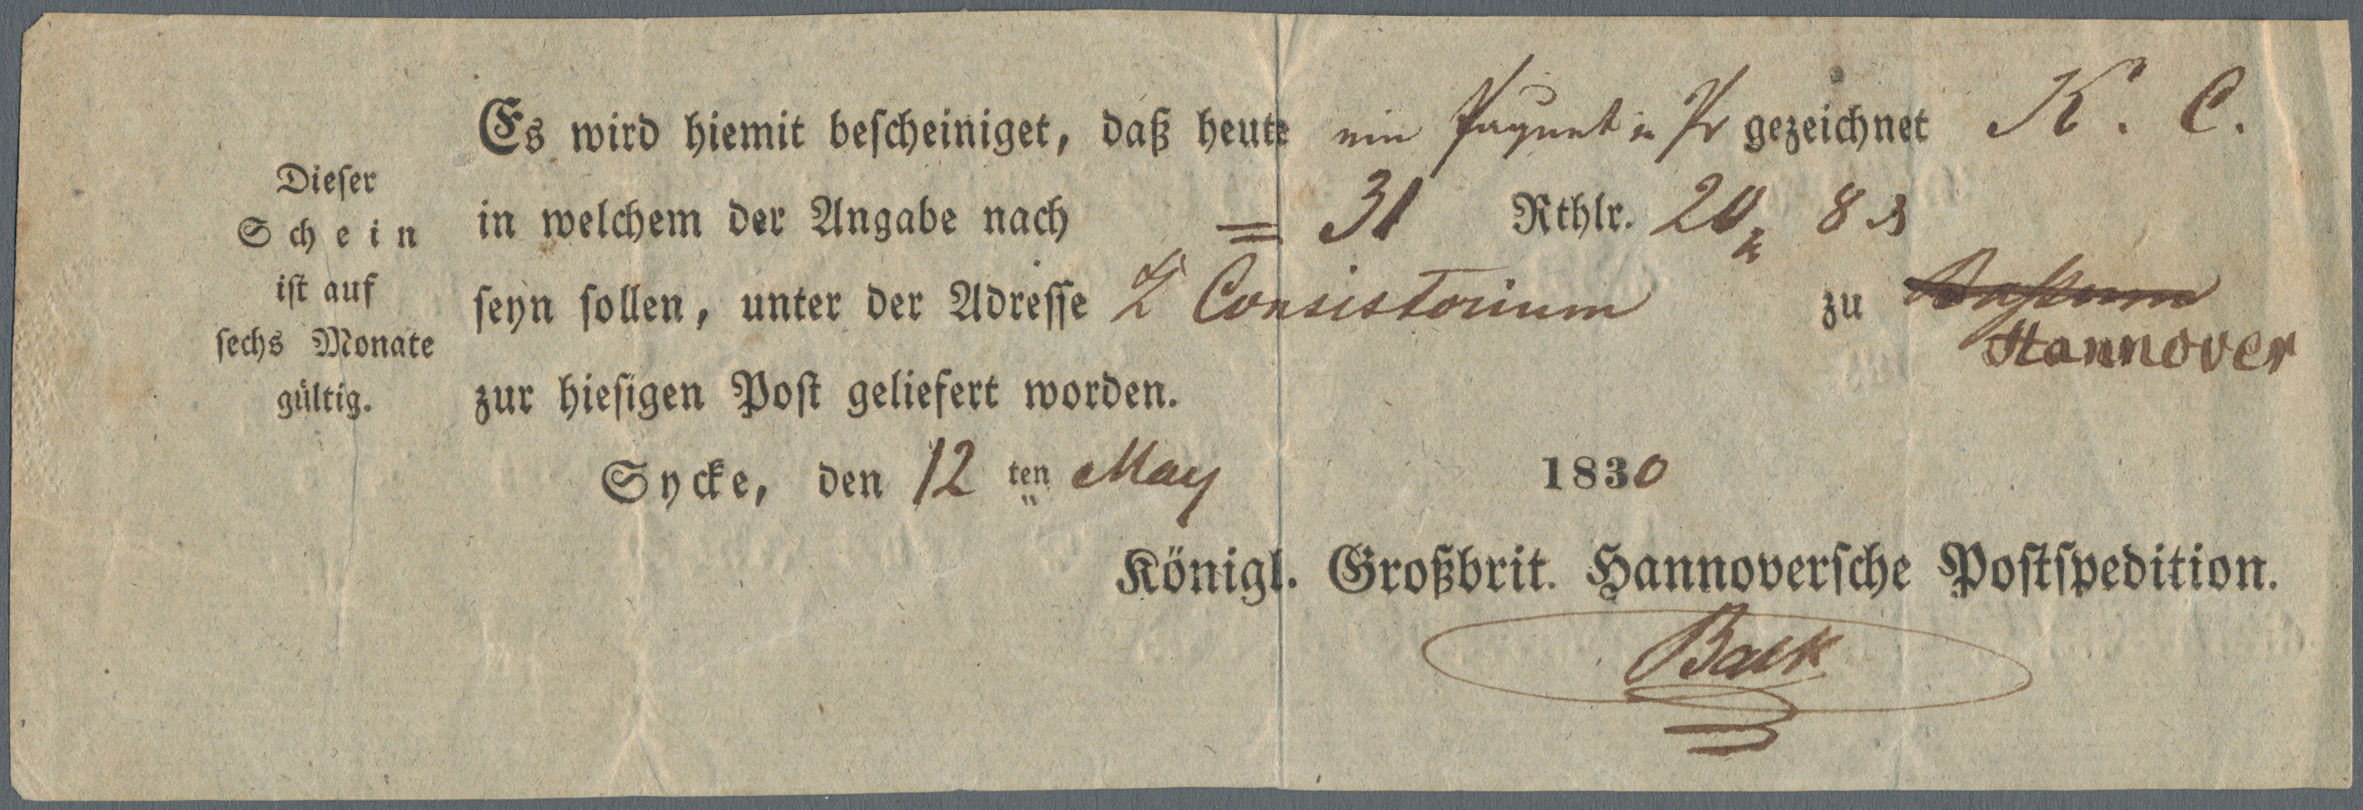 Dieser
Schein
ist auf
sechs Monate
gültig.
Es wird hiemit bescheiniget, daß heute ein Paquet in Pr gezeichnet K. C.
in welchem der Angabe nach = 31 Rthlr. 20 8
seyn sollen, unter der Adresse Consistorium zu
Hannover
zur hiesigen Post geliefert worden.
Sycke, den 12 ten May 1830
Königl. Großbrit. Hannoversche Postspedition.